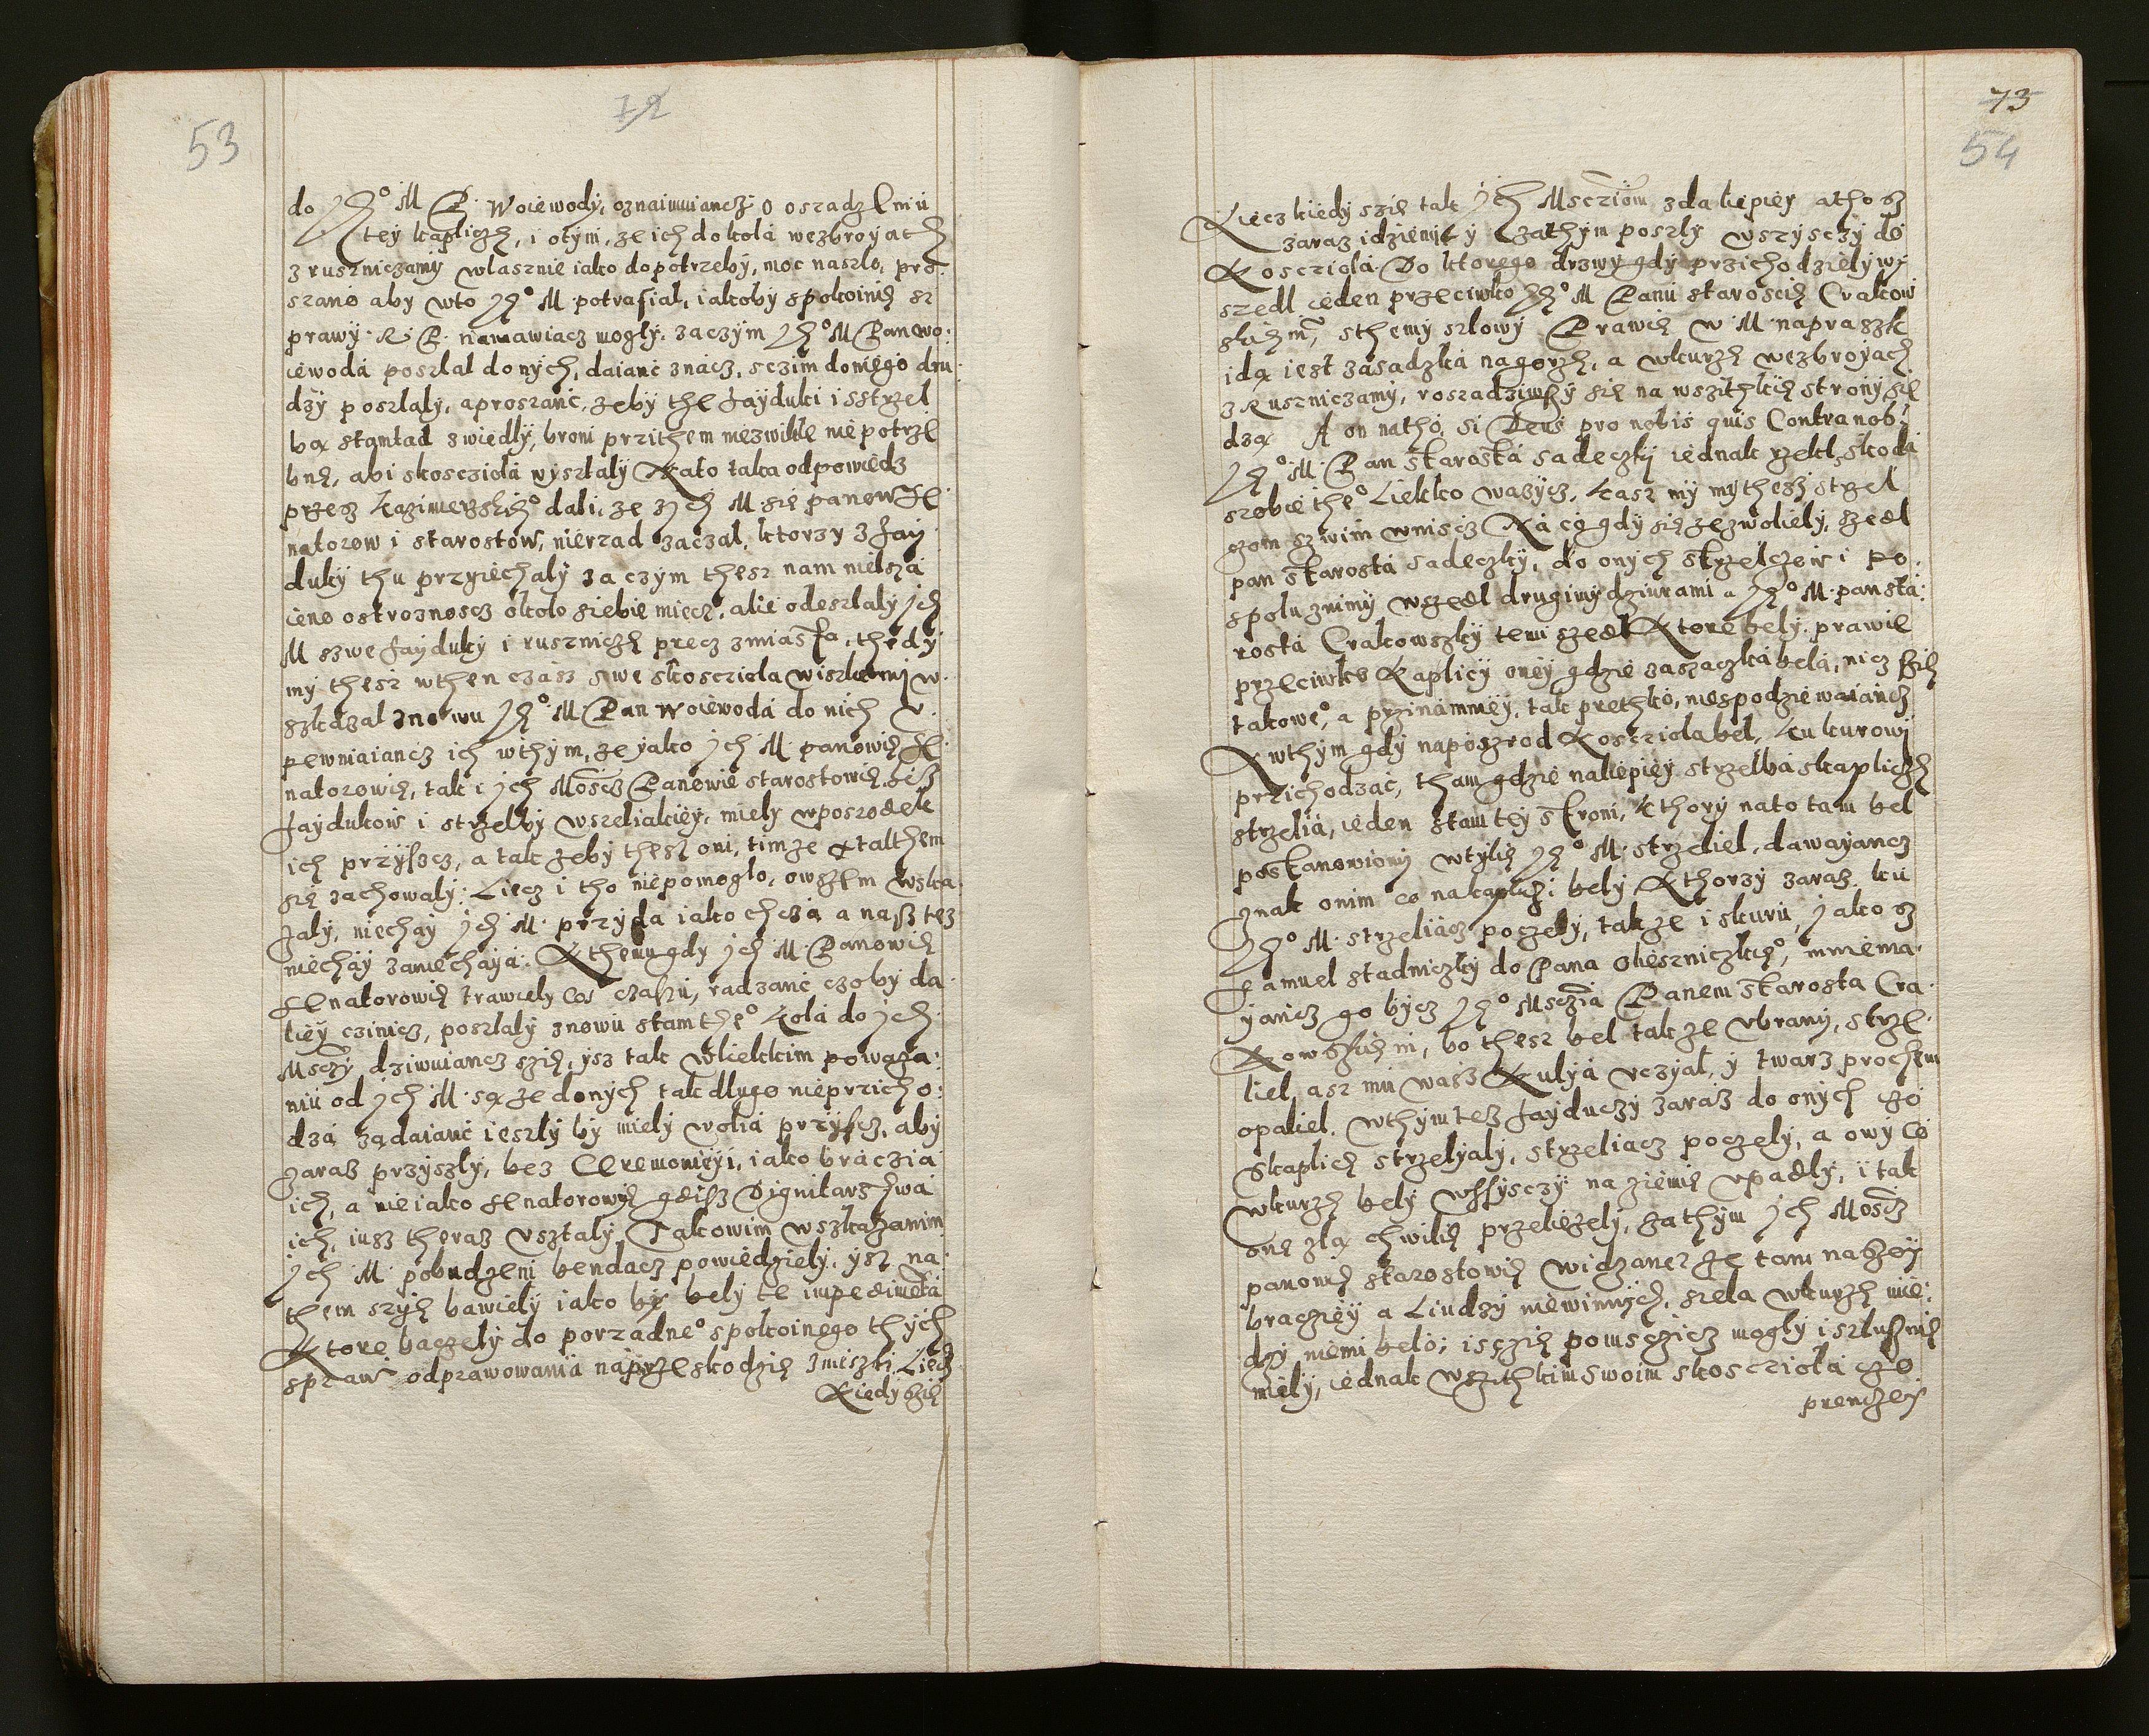 53
72
do Je͞º M P. Woiewody, oznaimuiancz o osradzeniu
tey kapliczę, i otym, ze ich dokola wezbroyach
z ruszniczamy wlasznie iako dopotrzeby, moc naszlo, pro:
szano aby wto Jeº M potrafial, iakoby spokoinię sz
prawy R. P. namawiacz mogly. zaczym Jeº M Pan wo:
iewoda poszlal donych, daianc znacz, sczim doniego dru:
dzy poszlaly, aproszanc, zeby the Hayduki i sstrzel
bą stamtad zwiedly, broni przithem niezwikle niepotrze
bnę, abi skosczióla wyszlaly Nato taka odpowiedz
przez Kazimerskieº dali, ze z Ich M. się panow Se
natorow i starostow, nierzad zaczal, ktorzy z Hay
duky thu przyiechaly zaczym thesz nam nielza
ieno ostroznoscz okolo siebie miecz, alie odeszlaly Ich
M szwe Hayduky i rusznicze precz z miasta, thedy
my thesz wthen czasz swe skoscziola wiszlemj w
szkazal znowu Jeº M. Pan Woiewoda do nich v.
pewniaiancz ich wthym, ze yako Ich M. panowię Se
natorowię, tak i Ich Moscz Panowie starostowię, bez
Haydukow i strzelby wszeliakiey, miely wposrodek
ich przyscz, a tak zeby thesz oni, timze xtalthem
się zachowaly: Liecz i tho niepomoglo, owszem wska
zaly, niechay Ich M. przyda iako chcza a nasz tez
niechay zaniechaya: Kthemu gdy Ich M Panowię
Senatorowię trawiely cos czaszu, radzanc czoby da
liey czinicz, poszlaly znowu stamtheº Kola do Ich
Msczy dziwuiancz szię, ysz tak wliekkim powaza:
niu od Ich M. są ze donych tak dlugo nieprzicho:
dza żądaianc ieszly by miely wolia przyscz, aby
zaraz przyszly, bez Ceremoniyi, iako braczia
ich, a nie iako Senatorowye gdisz Dignitarstwa
ich, iusz theraz vsztaly. Takowim wszkazanim
Ich M pobudzeni bendacz powiedziely, ysz na
them szyę bawiely iako by bely te impedimeta
Ktore baczely do porzadneº spokoinego thych
spraw odprawowania naprzeskodzię zmiszki Liecz
Kiedy szię
73
54
Liecz kiedy szię tak Ich Msczióm zda liepiey atho sz
zaraz idziemy y zathym poszly wszysczy do
Koscziola Do ktorego drzwy gdy przichodziely wy
szedl ieden przeciwko Jeº M Panu staroscię Crakow
skiem, sthemy szlowy Prawię W M naprasżk
idą iest zasadzka nagorzę, a wkurzę wezbroyach
z Ruszniczamy, roszadziwszy się na wszithkię strony się
dzą A on natho, si Deus pro nobis quis Contra nobs
Jeº M. Pan starosta sadeczkj iednak rzekl, skoda
szobie theº Liekko wazycz, kasz my mythesz strzel
czom szwim wniscz Na co gdy się zezwoliely, szedl
pan starosta sadeczky, do onych strzelczow i po
spolu znimy wszedl drugimy dziurami a Jeº M. pan sta:
rosta Crakowszky temi szedl Ktore bely prawie
przeciwko Kaplicy oney gdzie zaszaczka bela, nicz szię
takoweº, a przinammiey, tak prethko, niespodziewaiancz
A wthym gdy naposzrod Koscziola bel, ku kurowj
przichodzac, tham gdzie naliepiey strzelba skapliczę
strzelia, ieden stamtey stroni, kthory nato tam bel
postanowiony wtylię Jeº M. strzeliel, dawayancz
znak onim co nakapliczi bely Kthorzy zaraz ku
Jeº M. strzeliacz poczely, takze i skuru, Jako sz
Samuel stadniczky do Pana Oliesniczkieº, mniema
yancz go bycz Jeº Msczia Panem starosta Cra
Kowskiem, bo thesz bel takze vbrany, strze
liel asz mu wasz Kulya vczyal, y twarz prochem
opaliel. wthym tez Hayduczy zaraz do onych czo
skaplicę strzelyaly, strzeliacz poczely, a owy co
wkurzę bely wssysczy na ziemię vpadly, i tak
onę zlą chwilię przeliezely, zathym Ich Moscz
panowię starostowię widzanc ze tam naszey
bracziey a Liudzy niewinnych, siela wkurzę mie:
dzy niemi belo; isczię powsczicz mogly i szlusznię
miely, iednak wszithkim swoim skoscziola czo
prendzey